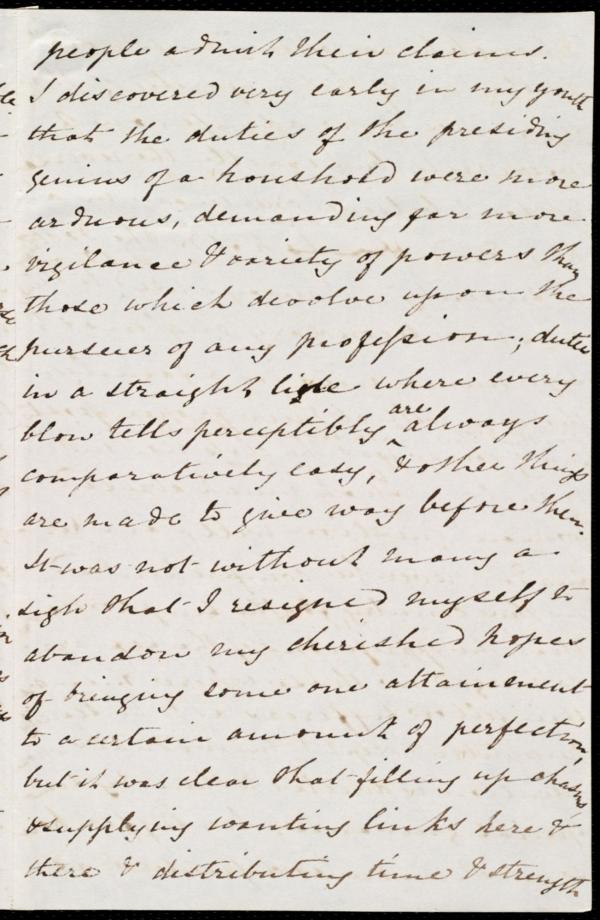 people admit their claims.
I discovered very early in my youth
that the duties of the presiding
genius of a household were more
arduous, demanding far more
vigilance & variety of powers than
those which devolve upon the
pursuer of any profession; duties
in a straight line where every
blow tells perceptibly are always
comparatively easy, & other things
are made to give way before them.
It was not without many a
sigh that I resigned myself to
abandon my cherished hopes
of bringing some one attainment
to a certain amount of perfection,
but it was clear that filling up chasms
& supplying wanting links here &
there & distributing time & strength